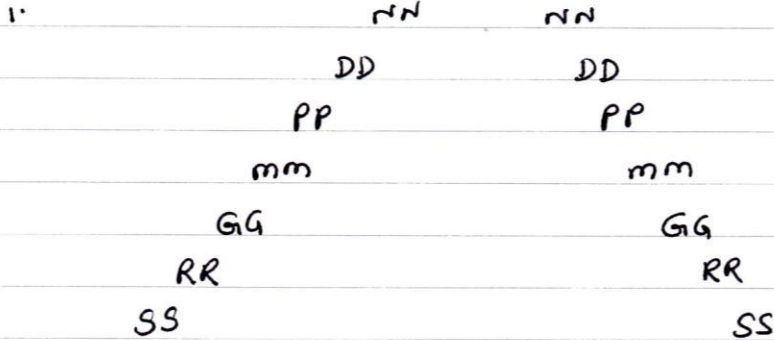 1. NN NN
DD DD
PP PP
mm mm
GG GG
RR RR
SS SS